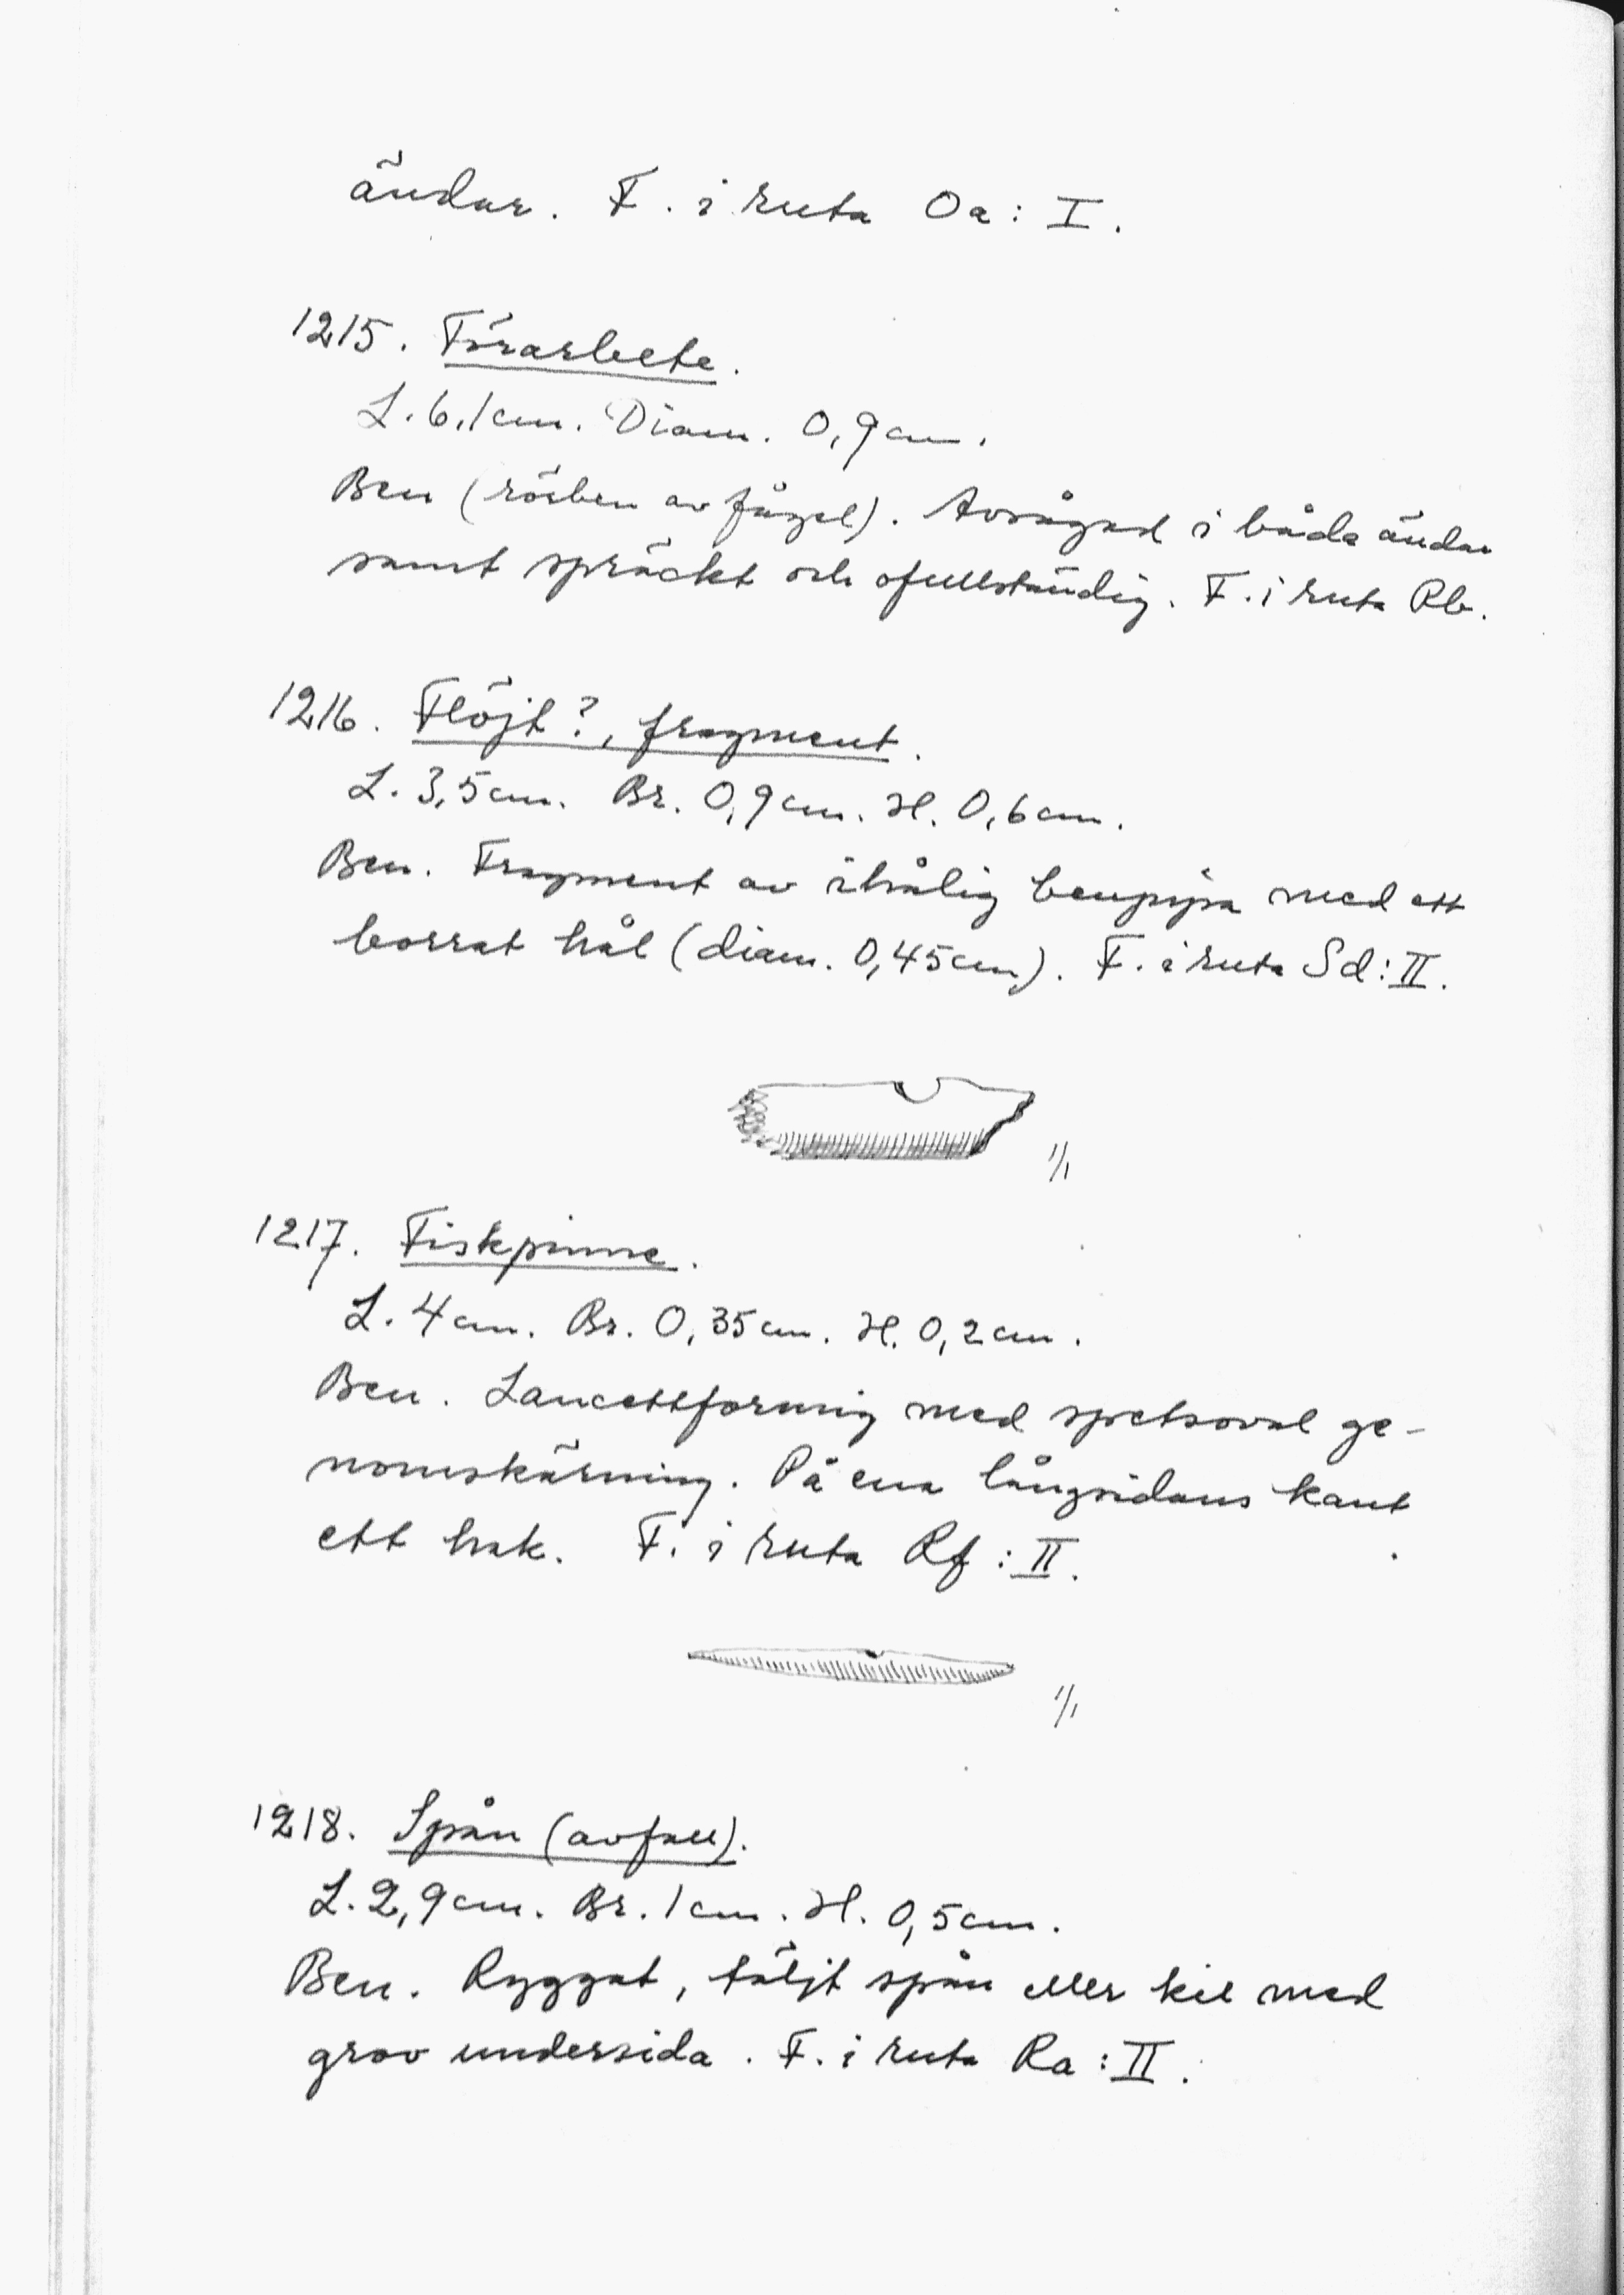 ändar. F. i ruta Oa: I.
1215. Förarbete.
L. 6,1 cm. Diam. 0,9 cm.
Ben (rörben av fågel). Avsågad i båda ändar
samt spräckt och ofullständig. F. i ruta Rb.
1216. Flöjt?, fragment.
L. 3,5 cm. Br. 0,9 cm. H. 0,6 cm.
Ben. Fragment av ihålig benpipa med ett
borrat hål (diam. 0,45 cm). F. i ruta Sd: II.
1/1
1217. Fiskpinne.
L. 4 cm. Br. 0,35 cm. H. 0,2 cm.
Ben. Lancettformig med spetsoval ge-
nomskärning. På ena långsidans kant
ett hak. F. i ruta Rf: II.
1/1
1218. Spån (avfall).
L. 2,9 cm. Br. 1 cm. H. 0,5 cm.
Ben. Ryggat, täljt spån eller kil med
grov undersida. F. i ruta Ra: II.